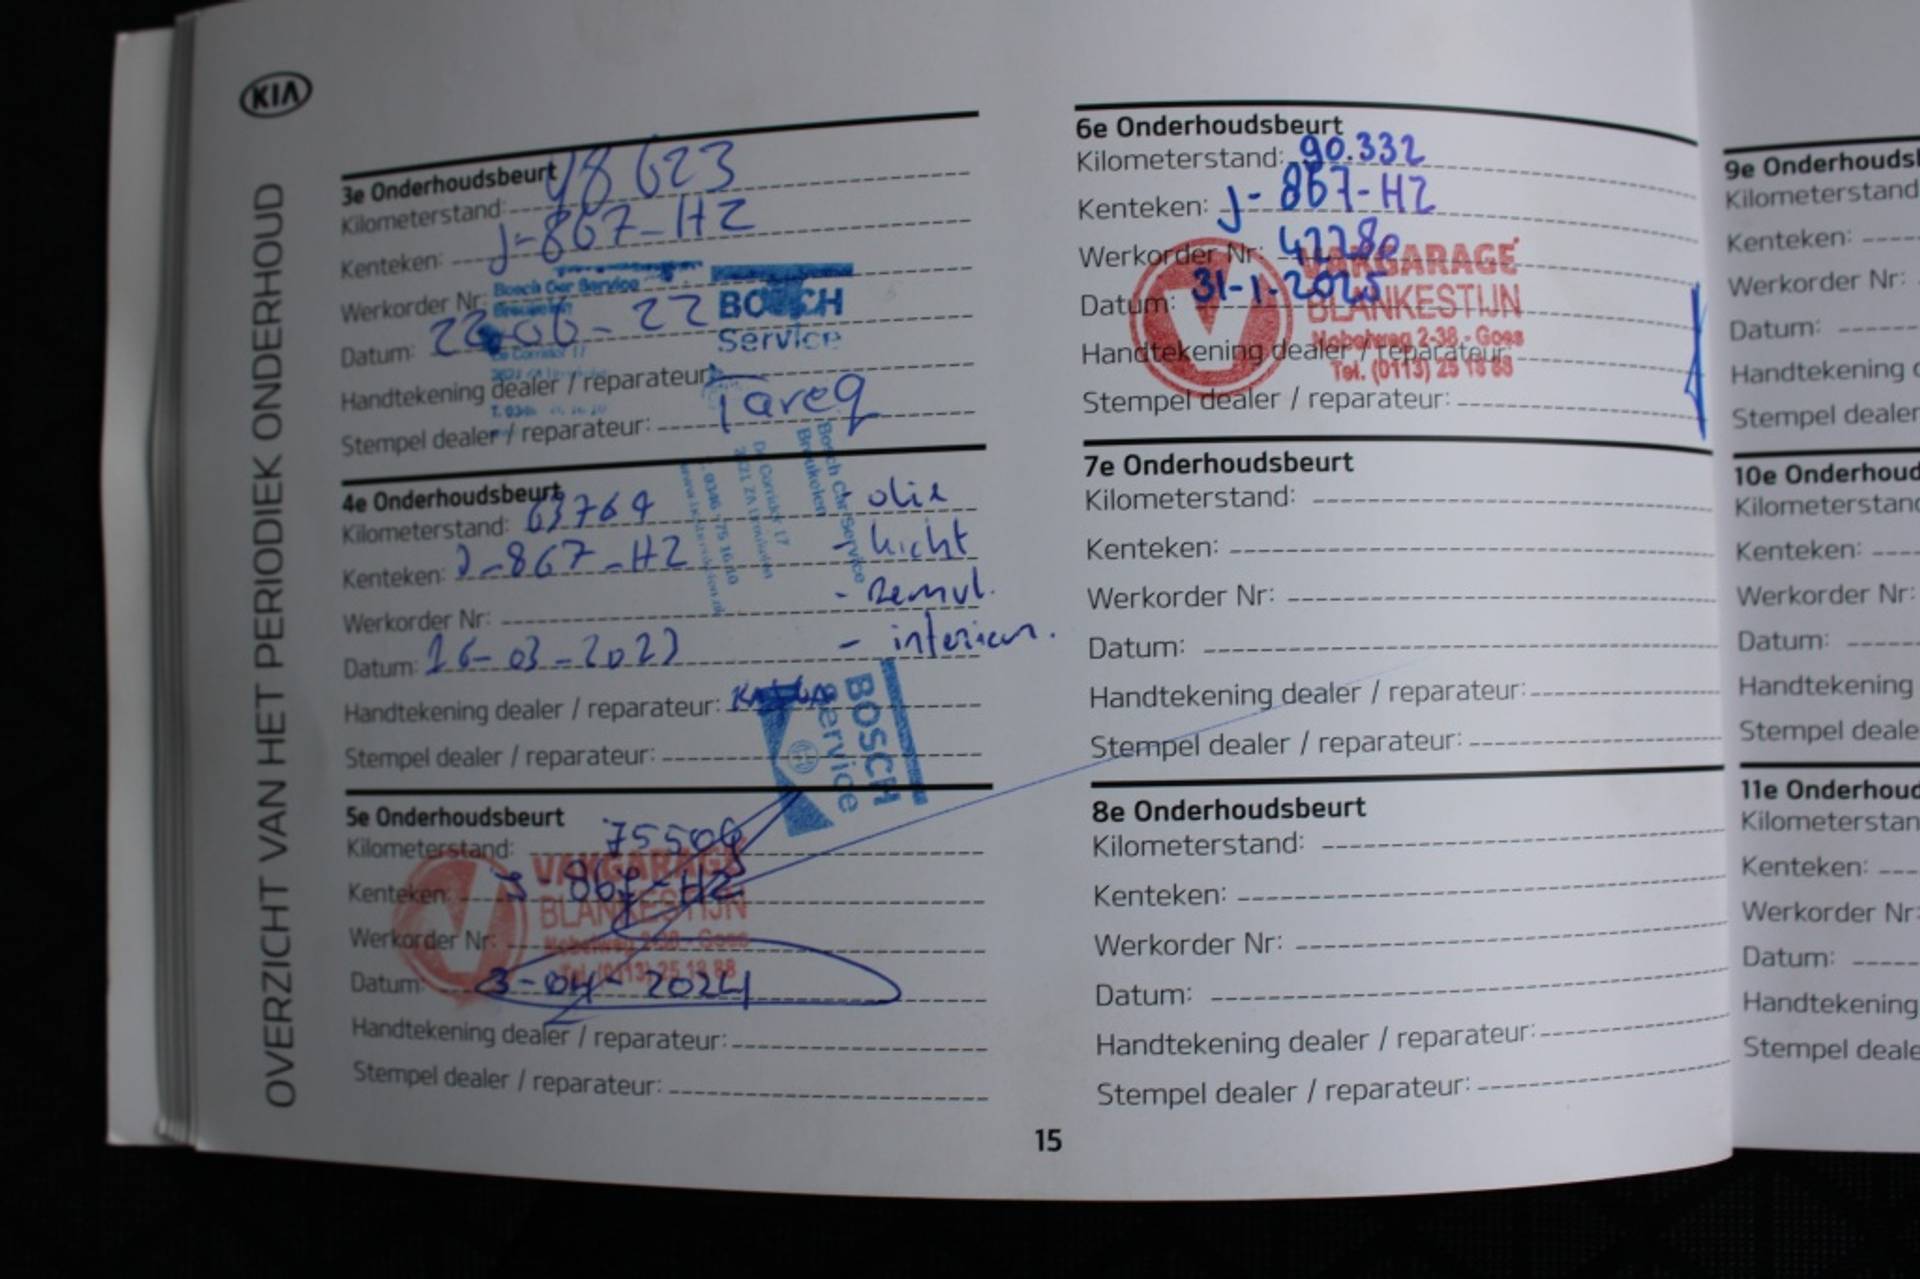 KIA
OVERZICHT VAN HET PERIODIEK ONDERHOUD
3e Onderhoudsbeurt
Kilometerstand: 48623
Kenteken: J-867-HZ
Werkorder Nr:
Bosch Car Service
Breukelen
BOSCH
Service
Datum: 22-06-22
De Corridor 17
Handtekening dealer / reparateur:
Tareq
Stempel dealer / reparateur:
4e Onderhoudsbeurt
Kilometerstand: 63764
Kenteken: J-867-HZ
Werkorder Nr:
Datum: 16-03-2023
Handtekening dealer / reparateur:
Stempel dealer / reparateur:
- olie
- lucht
- remvl.
- interieur.
Bosch Car Service
Breukelen
De Corridor 17
3621 ZA Breukelen
BOSCH
Service
5e Onderhoudsbeurt
Kilometerstand: 75509
Kenteken: J-867-HZ
Werkorder Nr:
Datum: 3-04-2024
VAKGARAGE
BLANKESTIJN
Nobelweg 2-38 - Goes
Tel. (0113) 25 18 88
Handtekening dealer / reparateur:
Stempel dealer / reparateur:
6e Onderhoudsbeurt
Kilometerstand: 90.332
Kenteken: J-867-HZ
Werkorder Nr: 42280
Datum: 31-1-2025
VAKGARAGE
BLANKESTIJN
Nobelweg 2-38 - Goes
Tel. (0113) 25 18 88
Handtekening dealer / reparateur:
Stempel dealer / reparateur:
7e Onderhoudsbeurt
Kilometerstand:
Kenteken:
Werkorder Nr:
Datum:
Handtekening dealer / reparateur:
Stempel dealer / reparateur:
8e Onderhoudsbeurt
Kilometerstand:
Kenteken:
Werkorder Nr:
Datum:
Handtekening dealer / reparateur:
Stempel dealer / reparateur:
15
9e Onderhoudsb
Kilometerstand
Kenteken:
Werkorder Nr:
Datum:
Handtekening d
Stempel dealer
10e Onderhoud
Kilometerstand
Kenteken:
Werkorder Nr:
Datum:
Handtekening
Stempel deale
11e Onderhoud
Kilometerstan
Kenteken:
Werkorder Nr:
Datum:
Handtekening
Stempel deale